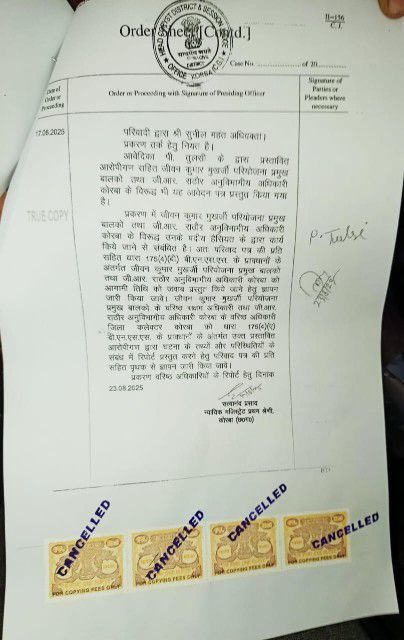 II-156
C.J.
Order Sheet [Contd.]
HEAD COPYIST DISTRICT & SESSION JUDGE
सत्यमेव जयते
OFFICE KORBA (C.G.)
Case No. of 20
Date of Order or Proceeding
Order or Proceeding with Signature of Presiding Officer
Signature of Parties or Pleaders where necessary
17.06.2025
परिवादी द्वारा श्री सुनील महंत अधिवक्ता।
प्रकरण तर्क हेतु नियत है।
आवेदिका पी. तुलसी के द्वारा प्रस्तावित
आरोपीगण सहित जीवन कुमार मुखर्जी परियोजना प्रमुख
बालको तथा जी.आर. राठौर अनुविभागीय अधिकारी
कोरबा के विरूद्ध भी यह आवेदन पत्र प्रस्तुत किया गया
है।
TRUE COPY
प्रकरण में जीवन कुमार मुखर्जी परियोजना प्रमुख
बालको तथा जी.आर. राठौर अनुविभागीय अधिकारी
कोरबा के विरूद्ध उनके पदीय हैसियत के द्वारा कार्य
किये जाने से संबंधित है। अतः परिवाद पत्र की प्रति
सहित धारा 175(4)(बी) बी.एन.एस.एस. के प्रावधानों के
अंतर्गत जीवन कुमार मुखर्जी परियोजना प्रमुख बालको
तथा जी.आर. राठौर अनुविभागीय अधिकारी कोरबा को
आगामी तिथि को जवाब प्रस्तुत किये जाने हेतु ज्ञापन
जारी किया जावे। जीवन कुमार मुखर्जी परियोजना
प्रमुख बालको के वरिष्ठ सक्षम अधिकारी तथा जी.आर.
राठौर अनुविभागीय अधिकारी कोरबा के वरिष्ठ अधिकारी
जिला कलेक्टर कोरबा को धारा 175(4)(ए)
बी.एन.एस.एस. के प्रावधानों के अंतर्गत उक्त प्रस्तावित
आरोपीगण द्वारा घटना के तथ्यों और परिस्थितियों के
संबंध में रिपोर्ट प्रस्तुत करने हेतु परिवाद पत्र की प्रति
सहित पृथक से ज्ञापन जारी किया जावे।
प्रकरण वरिष्ठ अधिकारियों के रिपोर्ट हेतु दिनांक
23.08.2025
P. Tulsi
सत्यानंद प्रसाद
न्यायिक मजिस्ट्रेट प्रथम श्रेणी,
कोरबा (छ0ग0)
CANCELLED
CANCELLED
CANCELLED
CANCELLED
FOR COPYING FEES ONLY
FOR COPYING FEES ONLY
FOR COPYING FEES ONLY
FOR COPYING FEES ONLY